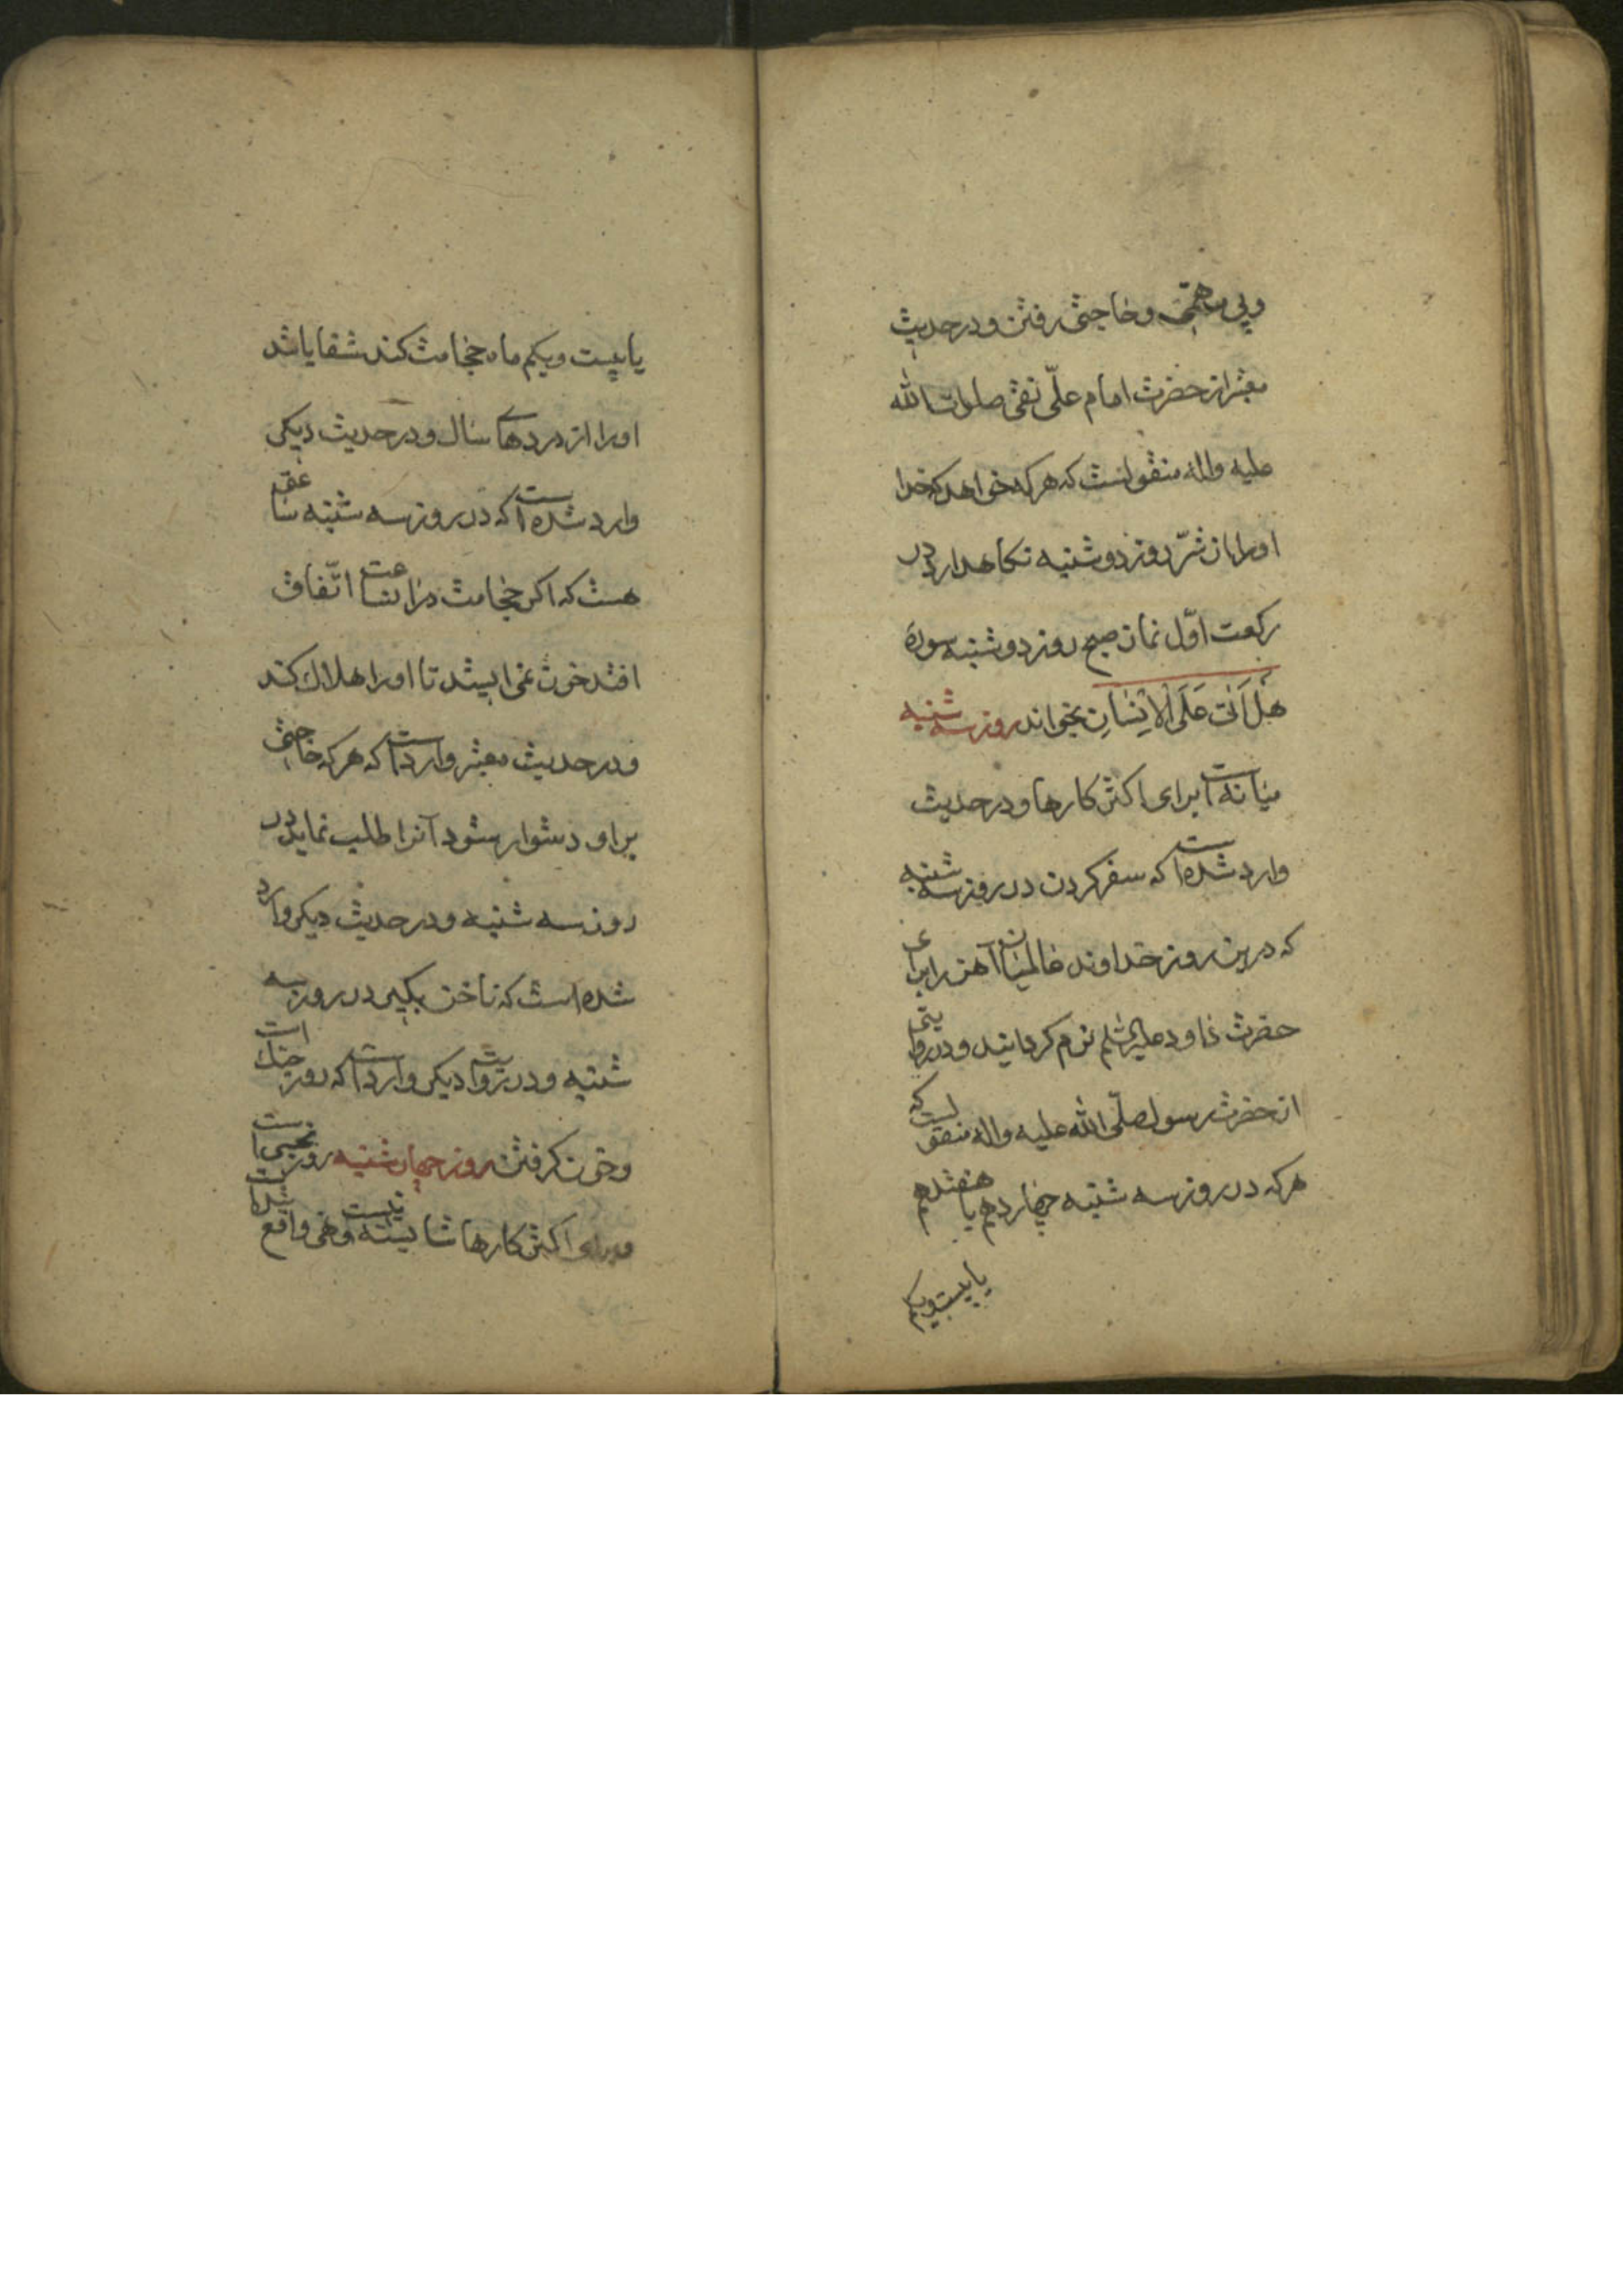 وپی مهمی و حاجتی رفتن و در حدیث
معتبر از حضرت امام علّی نقی صلوات الله
علیه واله منقولست که هر که خواهد که خدا
اورا از شرّ روز دوشنبه نکاهدارد در
رکعت اوّل نماز صبح روز دوشنبه سوره
هَلْ اَتٰی عَلَی الْاِنْسٰانِ بخواند روز سه شنبه
میانه است برای اکثر کارها و در حدیث
وارد شده است که سفر کردن در روز سه شنبه
که درین روز خداوند عالمیان آهن را برای
حضرت داود علیه السّلم نرم کردانید و در روایتی
از حضرت رسول صلّی الله علیه واله منقولست که
هر که در روز سه شنبه چهاردهم یا هفتدهم
یا بیست ویکم
یا بیست ویکم ماه حجامت کند شفا یابد
اورا از دردهای سال و در حدیث دیکر
وارد شده است که در روز سه شنبه ساعتی
هست که اکر حجامت در ان ساعت اتّفاق
افتد خون نمی ایستد تا اورا هلاک کند
و در حدیث معتبر وارد است که هر که حاجتی
بر او دشوار شود آنرا طلب نماید در
روز سه شنبه و در حدیث دیکر وارد
شده است که ناخن بکیر در روز سه
شنبه و در روایت دیکر وارد است که روز جنک است
و خون کرفتن روز چهارشنبه روز نحسی است
و برای اکثر کارها شایسته نیست و نهی واقع شده است